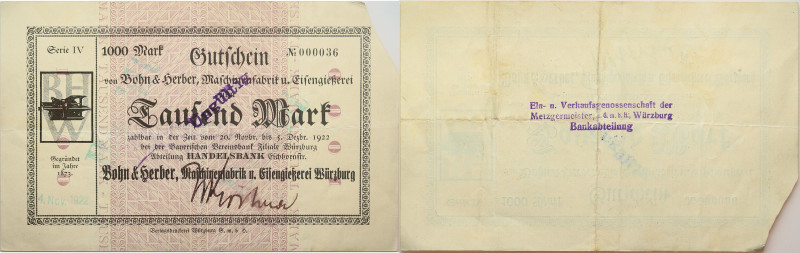 Serie IV
1000 Mark
Gutschein
№ 000036
von Bohn & Herber, Maschinenfabrik u. Eisengießerei
Tausend Mark
zahlbar in der Zeit vom 20. Novbr. bis 5. Dezbr. 1922
bei der Bayerischen Vereinsbank Filiale Würzburg
Abteilung HANDELSBANK Eichhornstr.
Bohn & Herber, Maschinenfabrik u. Eisengießerei Würzburg
BH
W
Gegründet
im Jahre
1873
Ein- u. Verkaufsgenossenschaft der
Metzgermeister, e.G.m.b.H., Würzburg
Bankabteilung